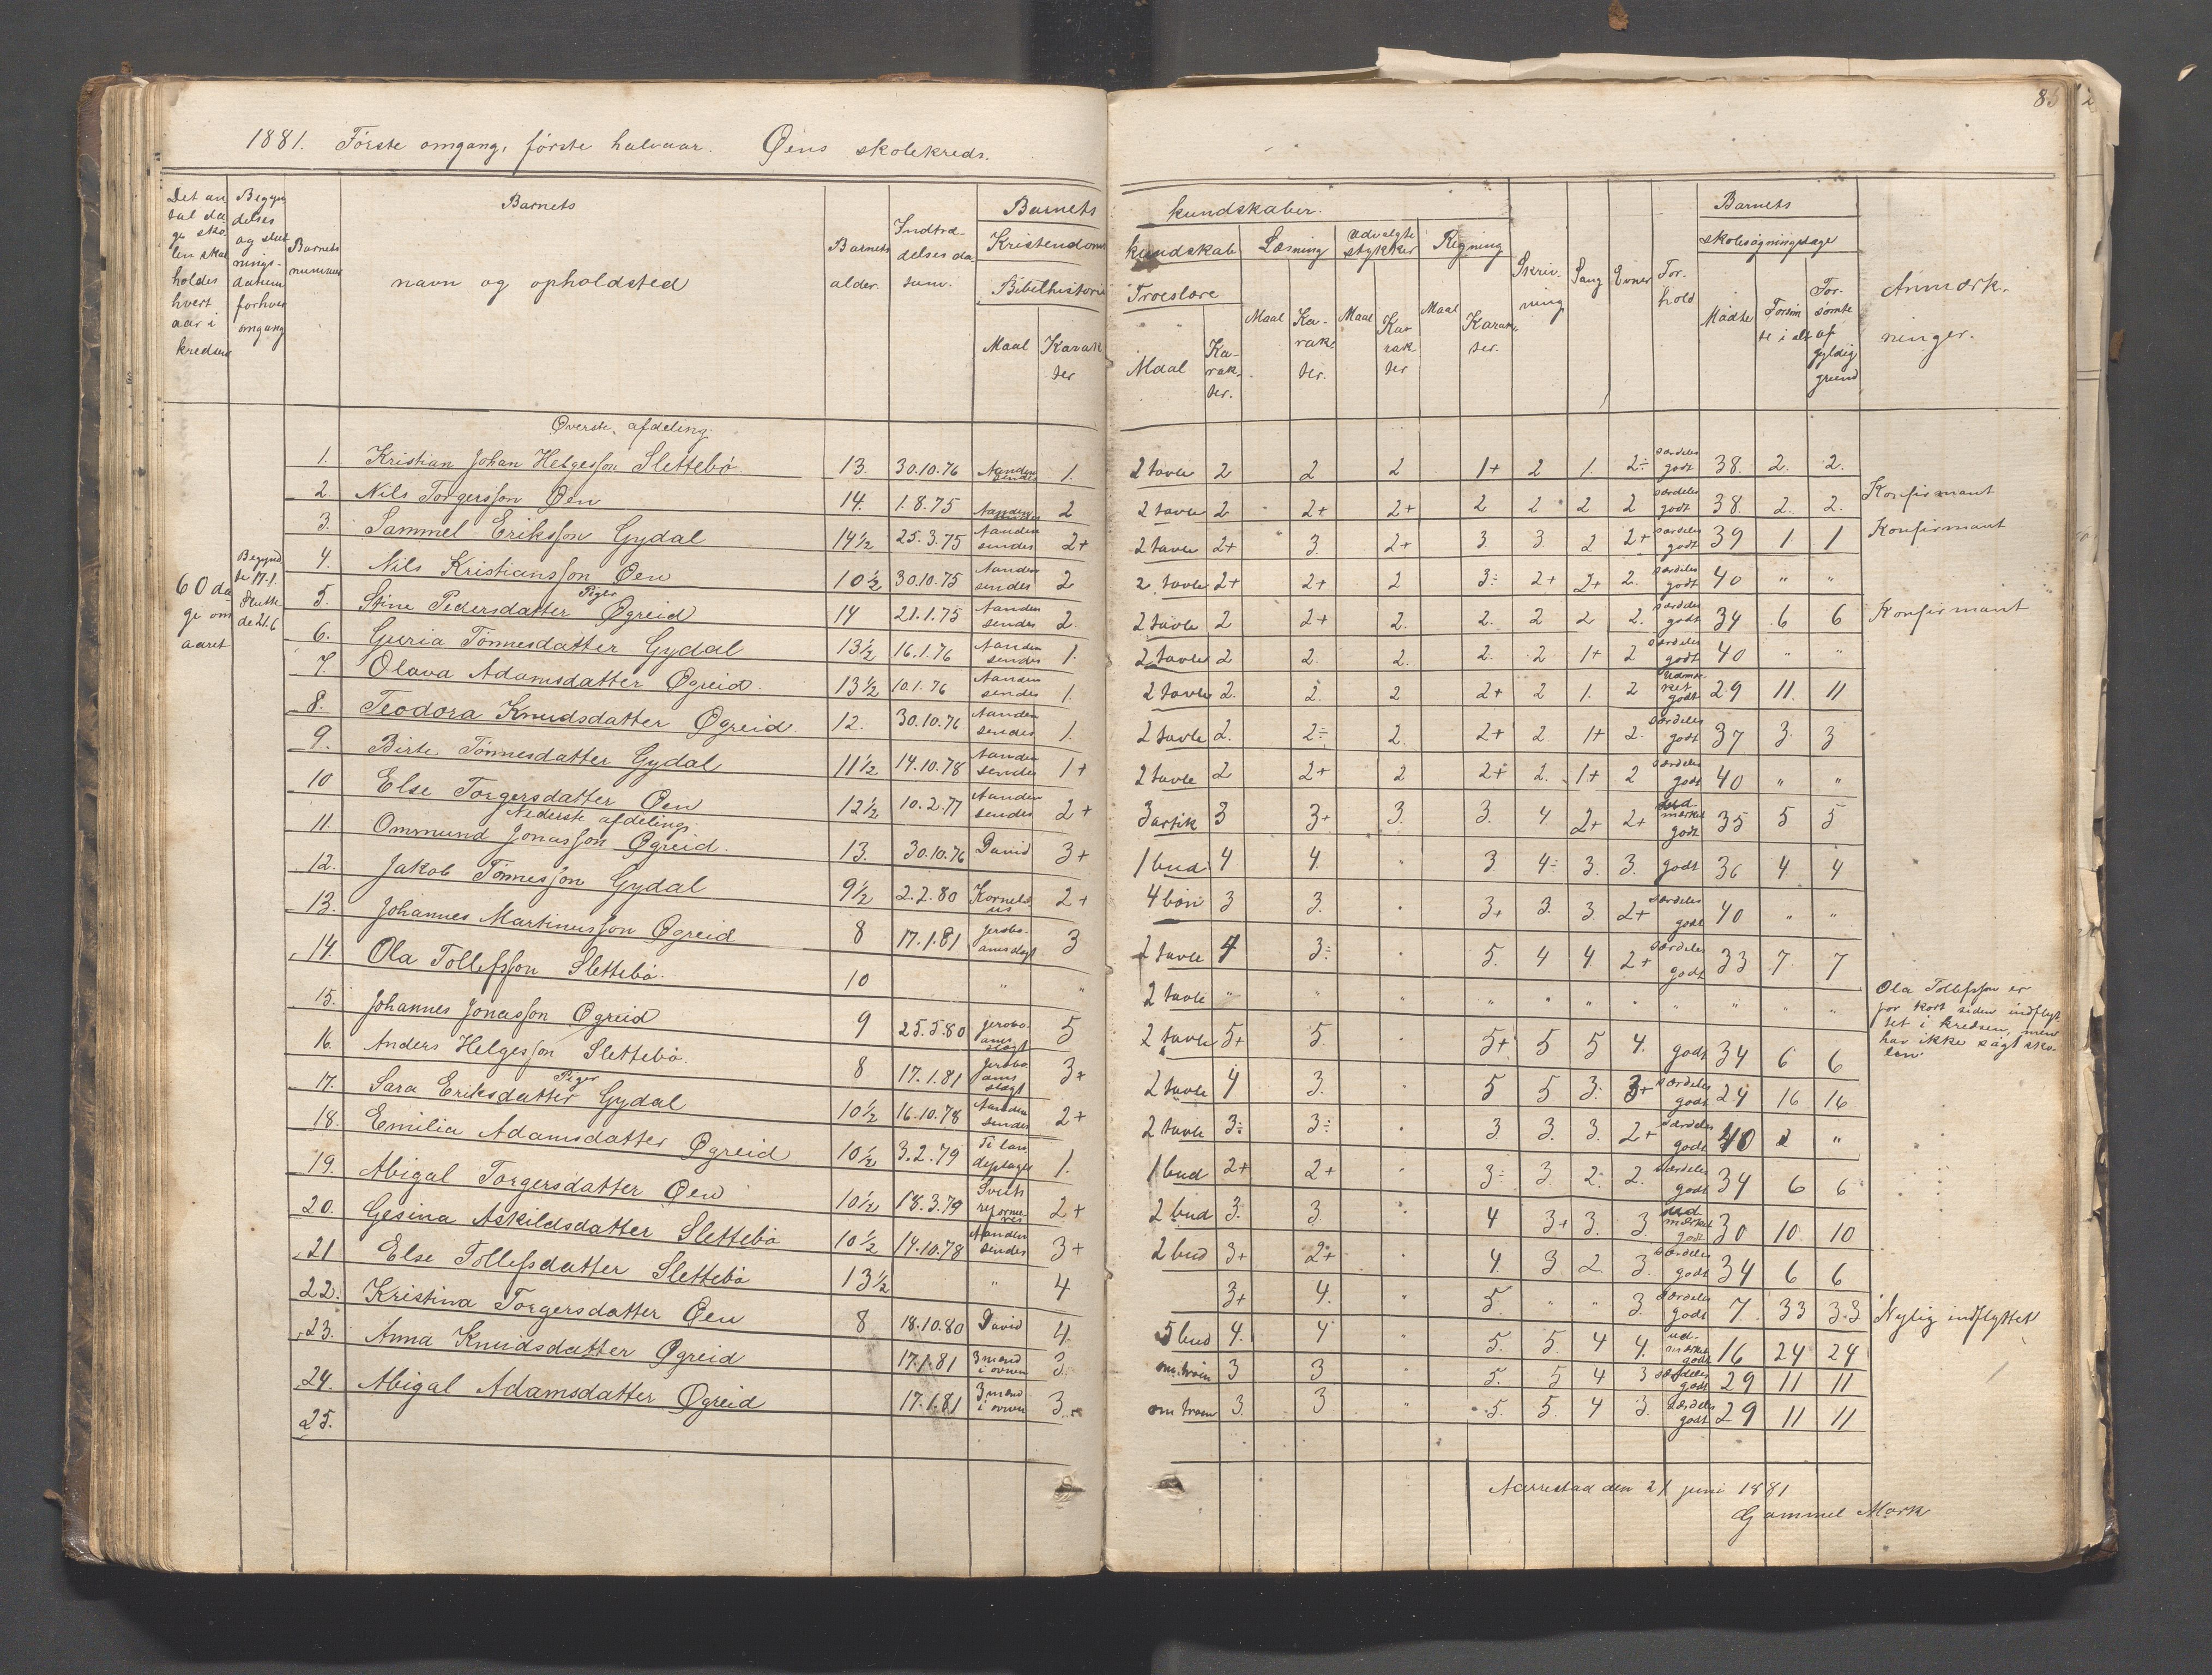 1881. Første omgang, første halvaar. Øens skolekreds.
85
Det antal dage skolen skal holdes hvert aar i kredsen
Begyndelses og slutningsdatum forhver omgang
Barnets nummer
Barnets navn og opholdsted
Barnets alder.
Indtrædelses datum.
Barnets kundskaber.
Kristendomskundskab
Bibelhistorie Maal Karakter
Troeslære Maal Karakter.
Læsning Maal Karakter.
Udvalgte stykker Maal Karakter
Regning Maal Karakter.
Skrivning
Sang
Evner
Forhold
Barnets skolesøgningsdage
Mødte
Forsømte i alt
Forsømte af gyldig grund
Anmærkninger.
60 dage om aaret
Begyndte 17.1. Sluttede 21.6
Øverste afdeling.
1. Kristian Johan Helgesson Slettebø. 13. 30.10.76 Aanden sendes 1. 2 tavle 2 2 2 1+ 2 1. 2÷ særdeles godt 38. 2. 2.
2. Nils Torgersson Øen 14. 1.8.75 Aanden sendes 2 2 tavle 2 2+ 2+ 2 2 2 2 særdeles godt 38 2. 2. Konfirmant
3. Sammel Eriksson Gydal 14½ 25.3.75 Aanden sendes 2+ 2 tavle 2+ 3. 2+ 3. 3. 2 2+ særdeles godt 39 1. 1 Konfirmant
4. Nils Kristiansson Øen 10½ 30.10.75 Aanden sendes 2 2 tavle 2+ 2+ 2 3÷ 2+ 2+ 2. særdeles godt 40 " "
Piger
5. Stine Pedersdatter Øgreid 14 21.1.75 Aanden sendes 2. 2 tavle 2 2+ 2. 2. 2 2 2. særdeles godt 34 6 6 Konfirmant
6. Guria Tönnesdatter Gydal 13½ 16.1.76 Aanden sendes 1. 2 tavle 2 2. 2. 2. 2 1+ 2 særdeles godt 40 " "
7. Olava Adamsdatter Øgreid. 13½ 10.1.76 Aanden sendes 1. 2 tavle 2. 2. 2 2+ 2 1. 2 udmærket godt 29 11. 11
8. Teodora Knudsdatter Øgreid. 12. 30.10.76 Aanden sendes 1. 2 tavle 2. 2÷ 2. 2+ 2 1+ 2. særdeles godt 37 3. 3
9. Birte Tönnesdatter Gydal 11½ 14.10.78 Aanden sendes 1+ 2 tavle 2 2+ 2 2+ 2. 1+ 2 særdeles godt 40 " "
10 Else Torgersdatter Øen 12½ 10.2.77 Aanden sendes 2+ 3 artik 3 3+ 3. 3. 4 2+ 2+ udmærket godt 35 5 5
Nederste afdeling.
11. Ommund Jonasson Øgreid. 13. 30.10.76 David 3+ 1 bud 4 4. " 3 4÷ 3. 3. godt 36 4 4
12. Jakob Tönnesson Gydal 9½ 2.2.80 Kornelius 2+ 4 bøn 3 3. 3+ 3. 3. 2+ særdeles godt 40 " "
13. Johannes Martinusson Øgreid 8 17.1.81 Jeroboams slægt 3 2 tavle 4 3÷ 5. 4 4. 2+ særdeles godt 33 7. 7
14. Ola Tollefsson Slettebø. 10 " " 2 tavle " " " " " " " " " "
Ola Tollefsson er for kort siden indflyttet i kredsen, men har ikke søgt skolen.
15. Johannes Jonasson Øgreid 9 25.5.80 Jeroboams slægt 5 2 tavle 5+ 5. 5+ 5 5 4. godt 34 6 6
16. Anders Helgesson Slettebø. 8 17.1.81 Jeroboams slægt 3+ 2 tavle 4 3. 5 5 3. 3+ særdeles godt 24 16 16
Piger
17. Sara Eriksdatter Gydal 10½ 16.10.78 Aanden sendes 2+ 2 tavle 3÷ 3÷ 3 3. 3. 2+ særdeles godt 40 "
18. Emilia Adamsdatter Øgreid 10½ 3.2.79 1. 1 bud 2+ 2+ 3÷ 3. 2. 2. særdeles godt 34 6 6
19. Abigal Torgersdatter Øen 10½ 18.3.79 2+ 2 bud 3. 3. 4 3+ 3. 3. udmærket godt 30 10. 10
20. Gesina Askildsdatter Slettebø 10½ 14.10.78 Aanden sendes 3+ 2 bud 3+ 2+ 4. 3 2. 3. særdeles godt 34 6 6
21 Else Tollefsdatter Slettebø 13½ " 4 3+ 4. " 5. " " 3. særdeles godt 7. 33 33 Nylig indflyttet
22. Kristina Torgersdatter Øen 8 18.10.80 David 4. 5 bud 4. 4 " 5. 5. 4 4. udmærket godt 16 24 24
23. Anna Knudsdatter Øgreid 17.1.81 3 mænd i ovnen 3. 3 3 5. 5 4 3 særdeles godt 29 11 11
24. Abigal Adamsdatter Øgreid 17.1.81 3 mænd i ovnen 3. 3. 3 " 5. 5. 4 3. særdeles godt 29 11 11
25.
Aarrestad den 21 juni 1881
Gammel Mork